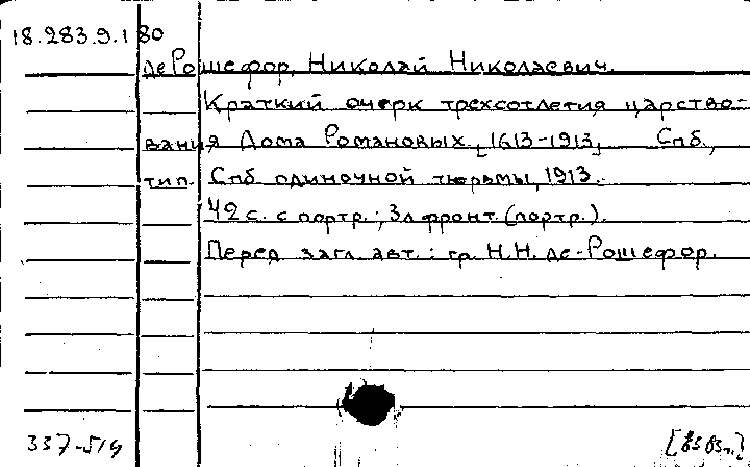 18.283.9.180
де Рошефор, Николай Николаевич.
Краткий очерк трехсотлетия царство-
вания Дома Романовых [1613-1913]. Спб.,
тип. Спб одиночной тюрьмы, 1913.
42 с. с портр.; 3 л фронт. (портр.).
Перед загл. авт.: гр. Н.Н. де-Рошефор.
337-51ч